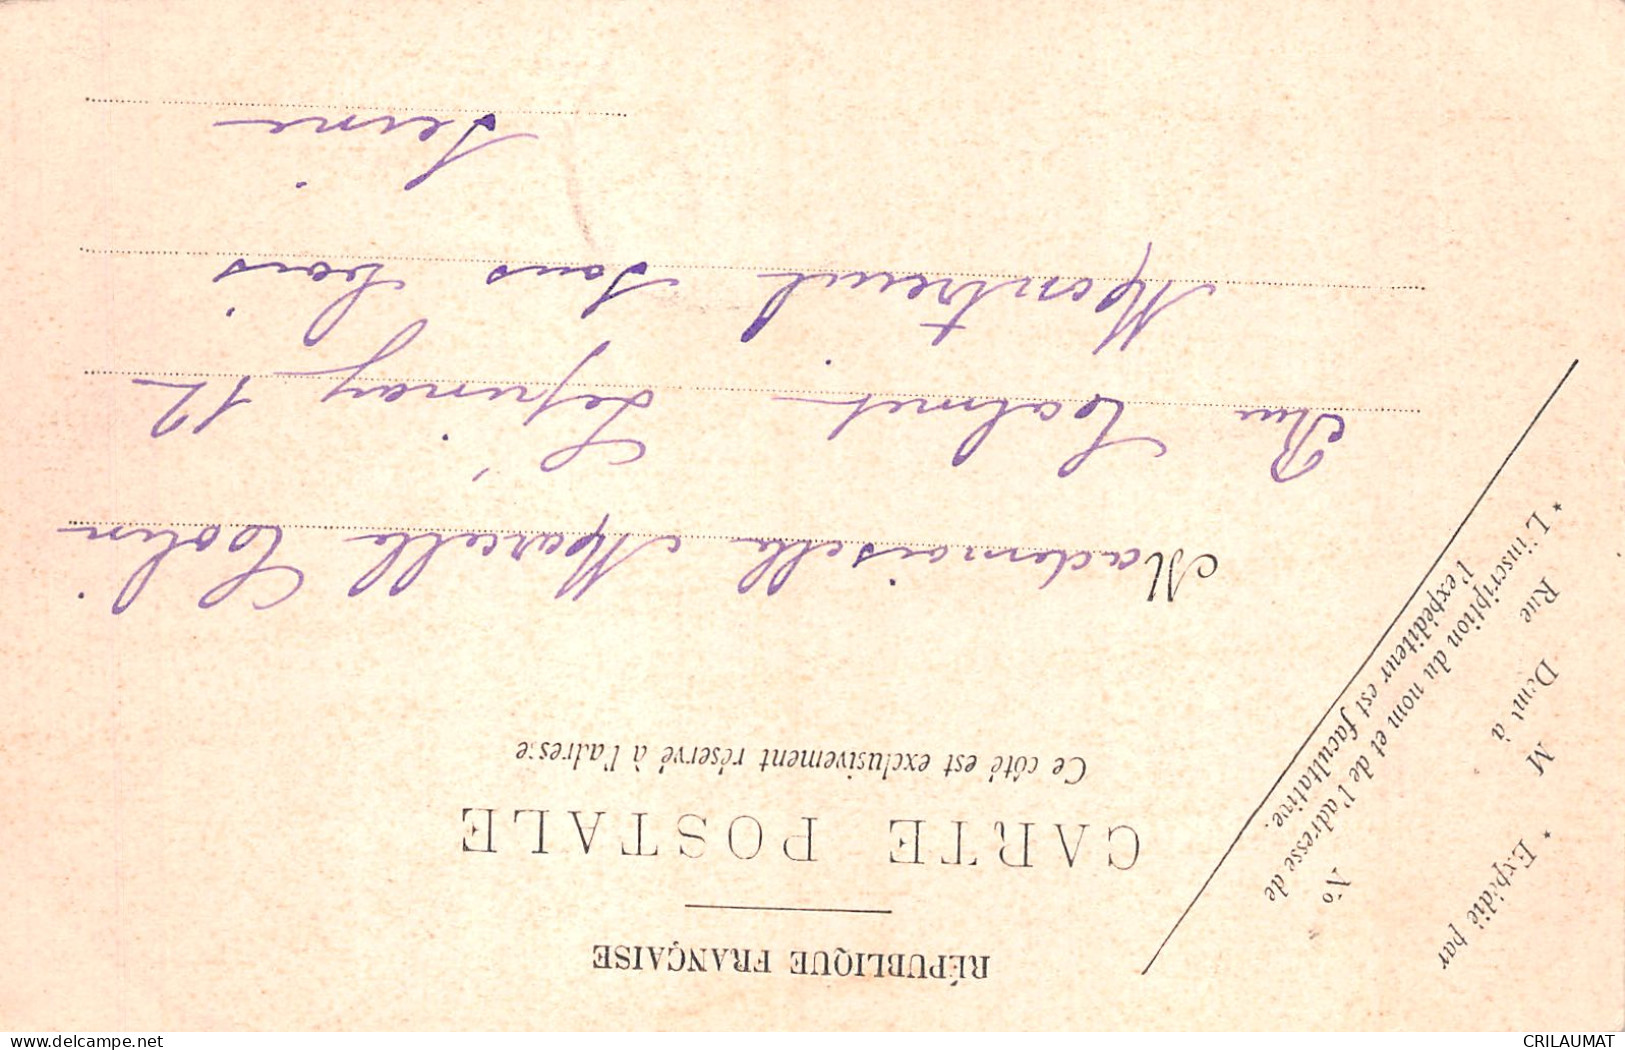 RÉPUBLIQUE FRANÇAISE
CARTE POSTALE
Ce côté est exclusivement réservé à l'adresse
* Expédié par
M
Demt à
Rue
No
* L'inscription du nom et de l'adresse de
l'expéditeur est facultative.
Mademoiselle Marcelle Colin
Rue Colmet Lépinay 12
Montreuil sous bois
Seine
delcampe.net
CRILAUMAT